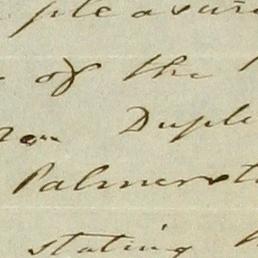 pleasure
of the
Duple
Palmerst
stating